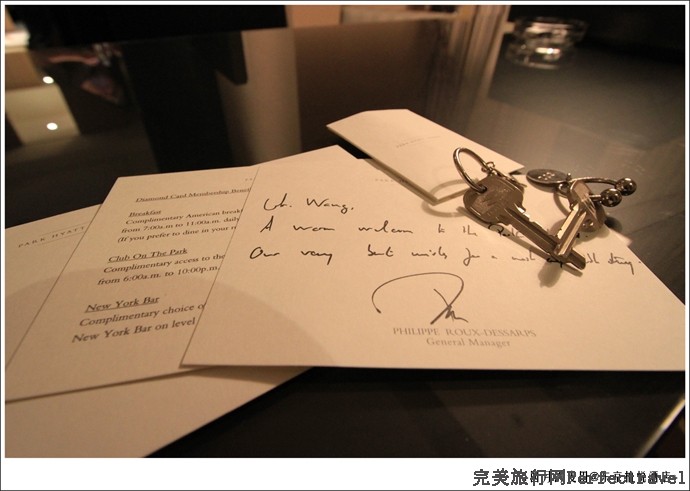 PARK HYATT
Diamond Card Membership
Breakfast
Complimentary American
from 7:00a.m to 11:00a.m. daily
(If you prefer to dine in your
Club On The Park
Complimentary access to the
from 6:00a.m. to 10:00p.m.
New York Bar
Complimentary choice
New York Bar on level
Wang,
A warm welcome to the
Our very best wishes for a most
PHILIPPE ROUX-DESSARPS
General Manager
完美旅行网Perfectravel